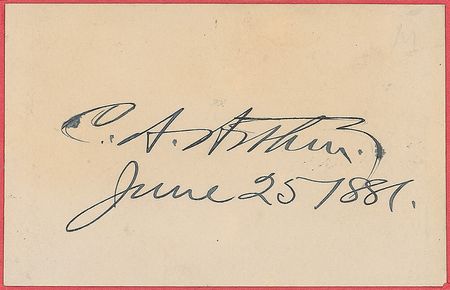 C. A. Arthur.
June 25 1881.